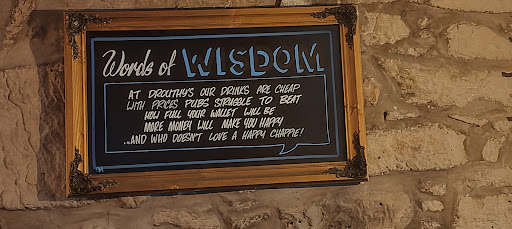 Words of WISDOM
AT DROUTHY'S OUR DRINKS ARE CHEAP
WITH PRICES PUBS STRUGGLE TO BEAT
HOW FULL YOUR WALLET WILL BE
MORE MONEY WILL MAKE YOU HAPPY
...AND WHO DOESN'T LOVE A HAPPY CHAPPIE!